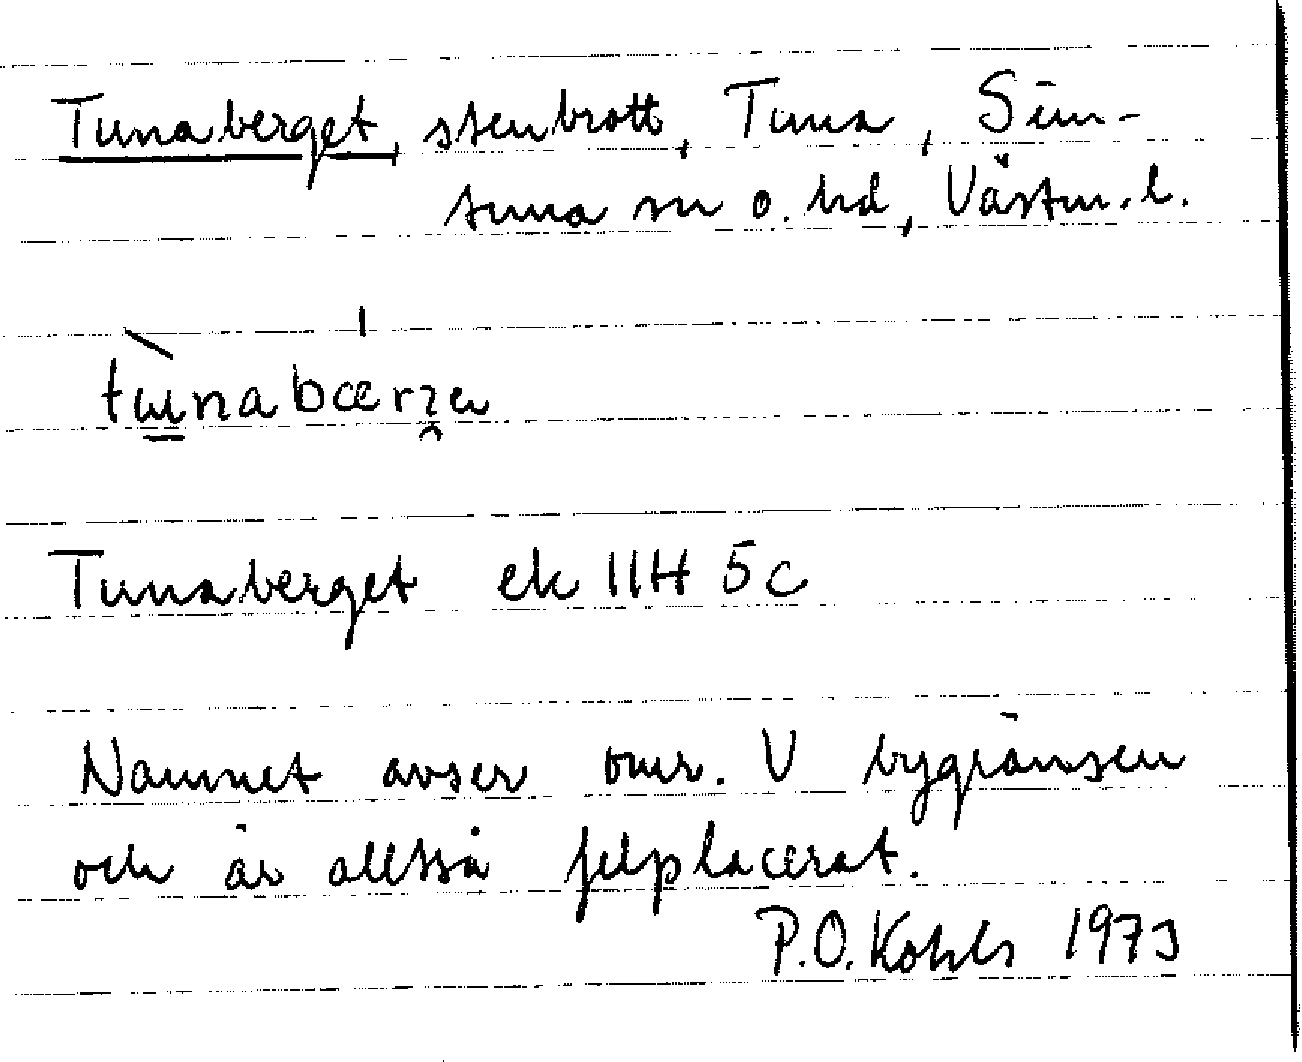 Tunaberget, stenbrott, Tuna, Sim-
tuna sn o. hd, Västm. l.
Tunaberget ek 11H 5c
Namnet avser omr. V bygränsen
och är alltså felplacerat.
P.O. Kohls 1973